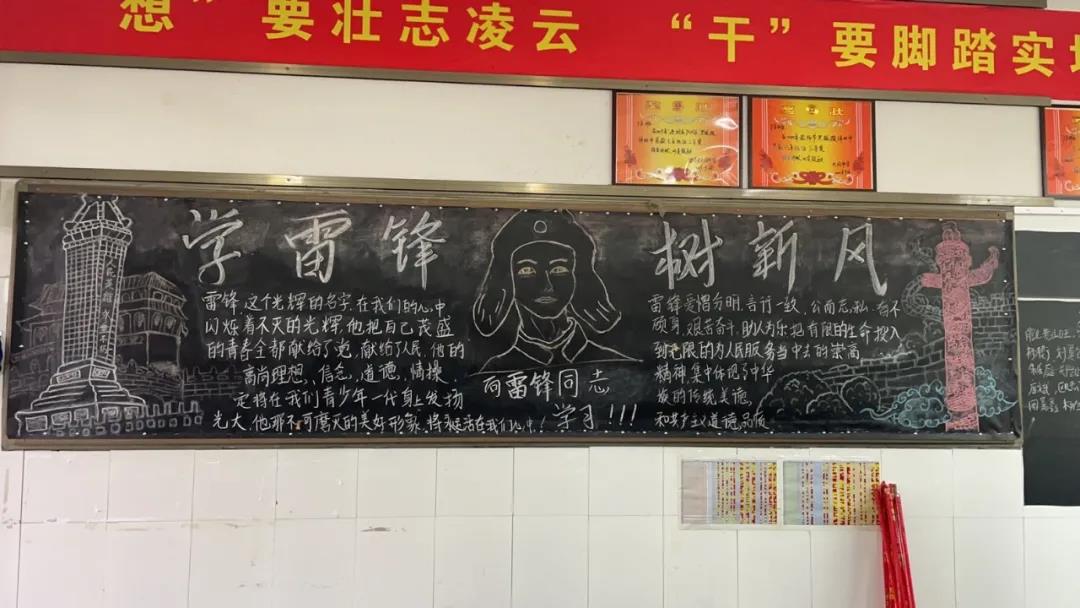 想”要壮志凌云 “干”要脚踏实地
学雷锋 树新风
雷锋,这个光辉的名字,在我们的心中
闪烁着不灭的光辉,他把自己茂盛
的青春全部献给了党,献给了人民,他的
高尚理想、信念,道德,情操,
定将在我们青少年一代身上发扬
光大,他那不可磨灭的美好形象,将永远活在我们心中!
向雷锋同志
学习!!!
雷锋爱憎分明,言行一致,公而忘私,奋不
顾身,艰苦奋斗,助人为乐,把有限的生命投入
到无限的为人民服务当中去的崇高
精神,集中体现了中华
族的传统美德,
和共产主义道德品质
人民英雄永垂不朽